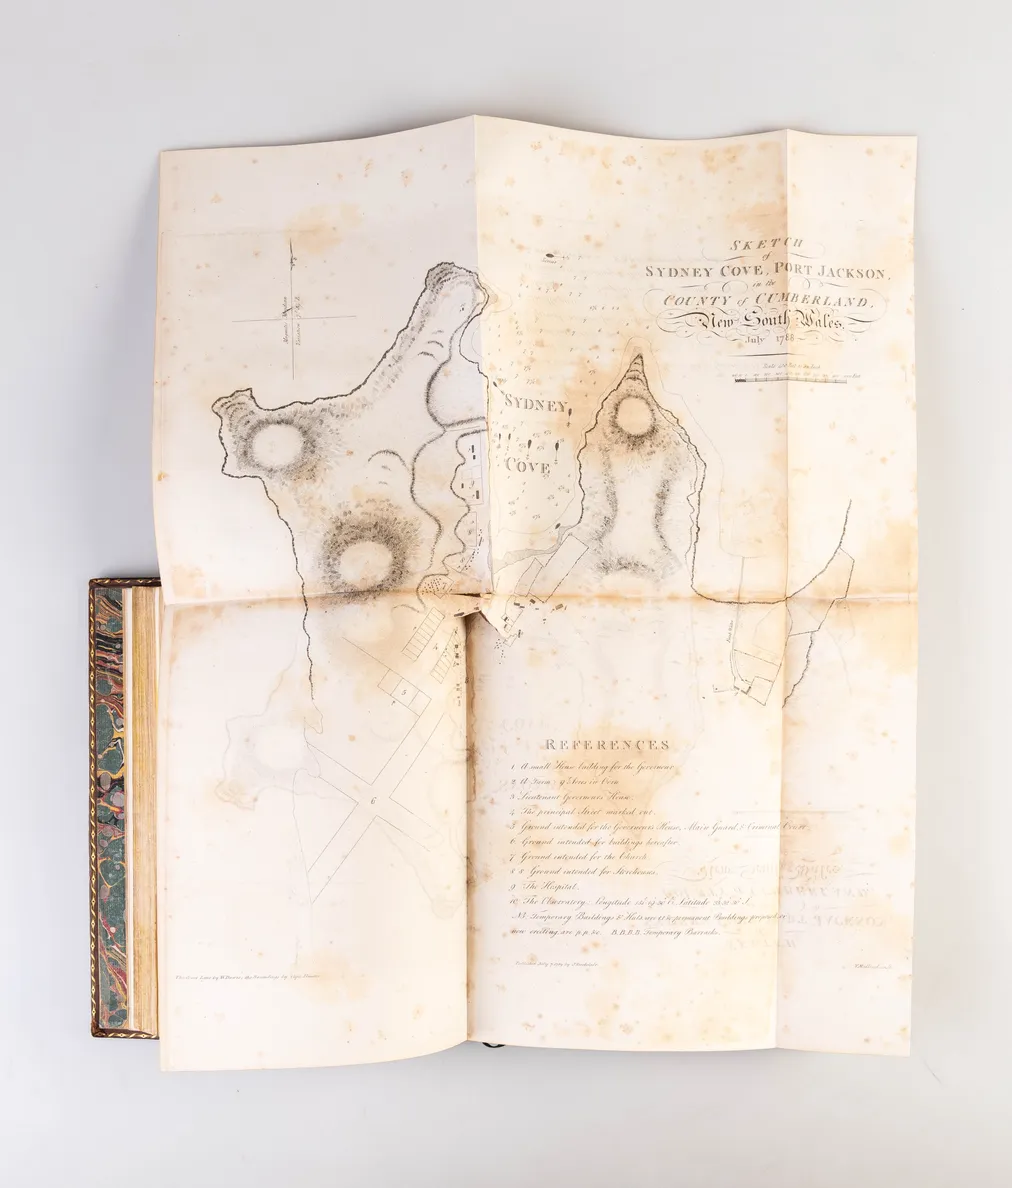 SKETCH
of
SYDNEY COVE, PORT JACKSON,
in the
COUNTY of CUMBERLAND,
New South Wales.
July 1788
SYDNEY
COVE
5
6
REFERENCES
1 A small House building for the Governour
2 A Farm 9 Acres in Corn
3 Lieutenant Governors House.
4 The principal Street marked out.
5 Ground intended for the Governors House, Main Guard, & Criminal Court
6 Ground intended for buildings hereafter.
7 Ground intended for the Church
8 8 Ground intended for Storehouses.
9 The Hospital.
10 The Observatory. Longitude E. Latitude S.
NB. Temporary Buildings & Huts are permanent Buildings
now erecting are p.p. &c. B.B.B.B. Temporary Barracks.
Published July by
the Soundings by Capt. Hunter